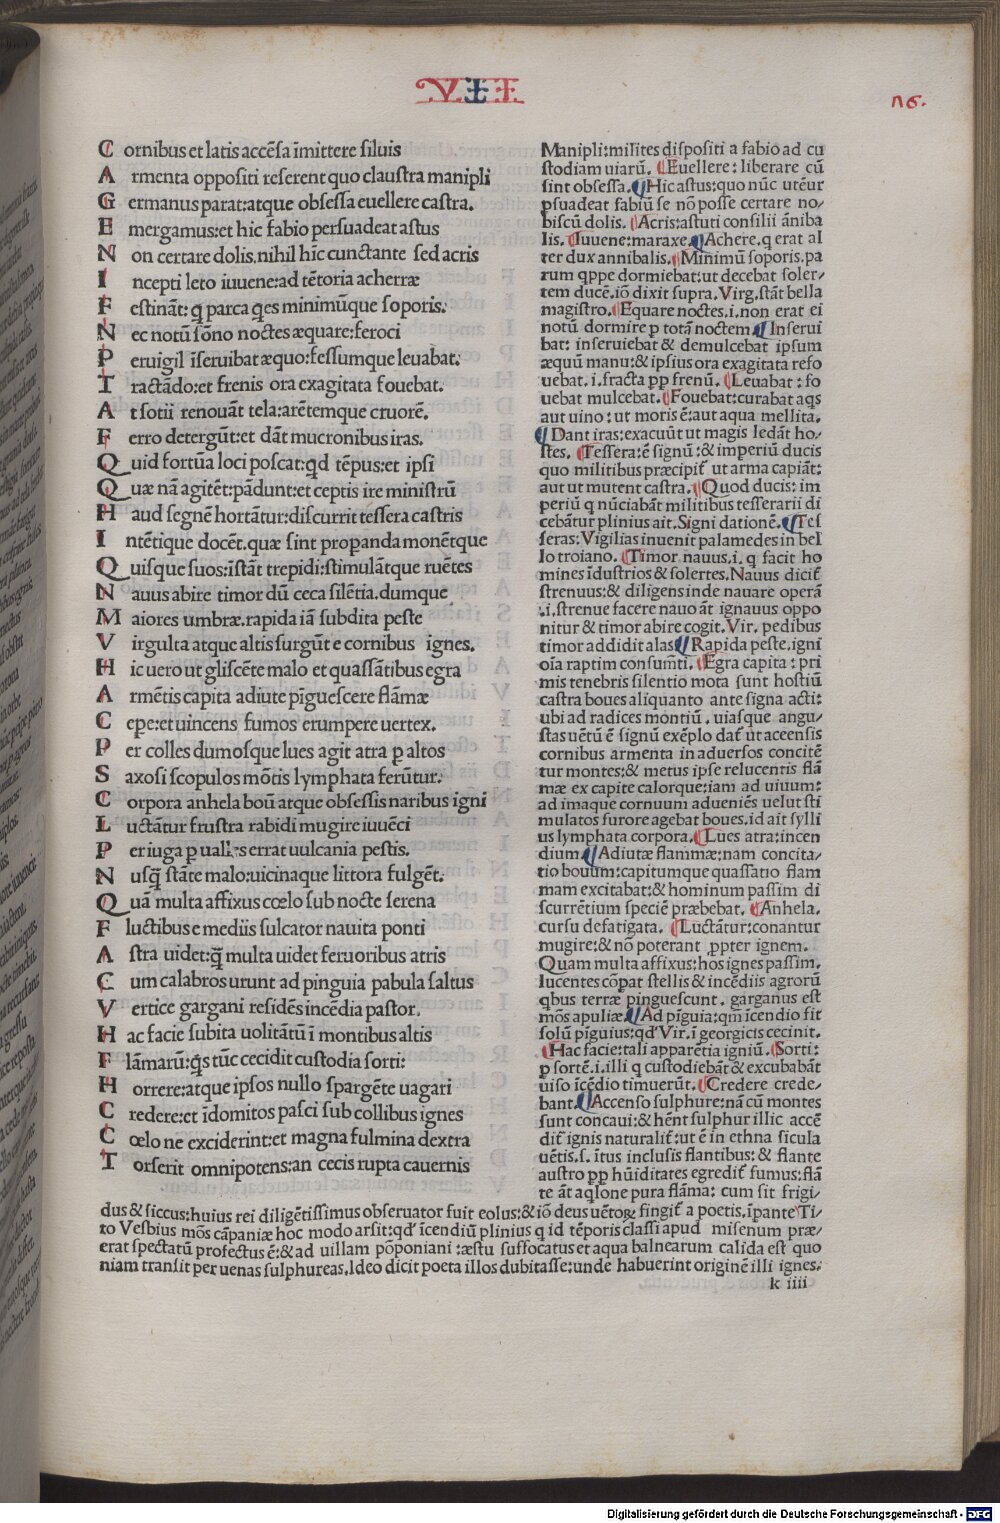 VII
Cornibus et latis accẽsa ĩmittere siluis
Armenta oppositi referent quo claustra manipli
Germanus parat:atque obsessa euellere castra.
Emergamus:et hic fabio persuadeat astus
Non certare dolis.nihil hĩc cunctante sed acris
Incepti leto iuuene:ad tẽtoria acherræ
Festinãt:q̃ parca q̃es minimũque soporis.
Nec notũ sõno noctes æquare:feroci
Peruigil ĩseruibat æquo:fessumque leuabat.
Tractãdo:et frenis ora exagitata fouebat.
At sotii renouãt tela:arẽtemque cruorẽ.
Ferro detergũt:et dãt mucronibus iras.
Quid fortũa loci poscat:qd tẽpus:et ipsi
Quæ nã agitẽt:pãdunt:et ceptis ire ministrũ
Haud segnẽ hortãtur:discurrit tessera castris
Intẽtique docẽt.quæ sint propanda monẽtque
Quisque suos:ĩstãt trepidi:stimulãtque ruẽtes
Nauus abire timor dũ ceca silẽtia.dumque
Maiores umbræ.rapida iã subdita peste
Virgulta atque altis surgũt e cornibus ignes.
Hic uero ut gliscẽte malo et quassãtibus egra
Armẽtis capita adiute pĩguescere flãmæ
Cepe:et uincens fumos erumpere uertex.
Per colles dumosque lues agit atra p altos
Saxosi scopulos mõtis lymphata ferũtur.
Corpora anhela boũ atque obsessis naribus igni
Luctãtur frustra rabidi mugire iuuẽci
Per iuga p ualles errat uulcania pestis.
Nusq̃ stãte malo:uicinaque littora fulgẽt.
Quã multa affixus cœlo sub nocte serena
Fluctibus e mediis sulcator nauita ponti
Astra uidet:q̃ multa uidet feruoribus atris
Cum calabros urunt ad pinguia pabula saltus
Vertice gargani residẽs incẽdia pastor.
Hac facie subita uolitãtũ ĩ montibus altis
Flãmarũ:q̃s tũc cecidit custodia sorti:
Horrere:atque ipsos nullo spargẽte uagari
Credere:et ĩdomitos pasci sub collibus ignes
Cœlo ne exciderint:et magna fulmina dextra
Torserit omnipotens:an cecis rupta cauernis
Manipli:milites dispositi a fabio ad cu
stodiam uiarũ. Euellere: liberare cũ
sint obsessa. Hic astus:quo nũc utẽur
psuadeat fabiũ se nõ posse certare no/
biscũ dolis. Acris:astuti consilii ãniba
lis. Iuuene:maraxe. Achere.q erat al
ter dux annibalis. Minimũ soporis.pa
rum qppe dormiebat:ut decebat soler/
tem ducẽ.iõ dixit supra. Virg.stãt bella
magistro. Equare noctes.i.non erat ei
notũ dormire p totã noctem. Inserui
bat: inseruiebat & demulcebat ipsum
æquũ manu:& ipsius ora exagitata refo
uebat.i.fracta pp frenũ. Leuabat: fo
uebat mulcebat. Fouebat:curabat aqs
aut uino: ut moris ẽ:aut aqua mellita.
Dant iras:exacuũt ut magis ledãt ho/
stes. Tessera:ẽ signũ:& imperiũ ducis
quo militibus præcipit̃ ut arma capiãt:
aut ut mutent castra. Quod ducis: im
periũ q nũciabãt militibus tesserarii di
cebãtur plinius ait. Signi dationẽ. Tes
seras: Vigilias inuenit palamedes in bel
lo troiano. Timor nauus.i.q facit ho
mines ĩdustrios & solertes. Nauus dicit̃
strenuus:& diligens inde nauare operã
.i.strenue facere nauo ãt ignauus oppo
nitur & timor abire cogit. Vir. pedibus
timor addidit alas. Rapida peste.igni
oĩa raptim consumẽti. Egra capita: pri
mis tenebris silentio mota sunt hostiũ
castra boues aliquanto ante signa acti:
ubi ad radices montiũ. uiasque angu/
stas uẽtũ ẽ signũ exẽplo dat̃ ut accensis
cornibus armenta in aduersos concitẽ
tur montes:& metus ipse relucentis flã
mæ ex capite calorque:iam ad uiuum:
ad imaque cornuum adueniẽs uelut sti
mulatos furore agebat boues.id ait sylli
us lymphata corpora. Lues atra:incen
dium. Adiutæ flammæ:nam concita/
tio bouum:capitumque quassatio flam
mam excitabat:& hominum passim di
scurrẽtium speciẽ præbebat. Anhela.
cursu defatigata. Luctãtur:conantur
mugire:& nõ poterant ,ppter ignem.
Quam multa affixus:hos ignes passim.
lucentes cõpat stellis & incẽdiis agrorũ
qbus terræ pinguescunt. garganus est
mõs apuliæ. Ad pĩguia:qm̃ icendio fit
solũ pĩguius:qd' Vir.ĩ georgicis cecinit.
Hac facie:tali apparẽtia igniũ. Sorti:
p sortẽ.i.illi q custodiebãt & excubabãt
uiso ĩcẽdio timuerũt. Credere crede/
bant. Accenso sulphure:nã cũ montes
sunt concaui:& hẽnt sulphur illic accẽ
dit̃ ignis naturalit̃:ut ẽ in ethna sicula
uẽtis.s. ĩtus inclusis flantibus:& flante
austro pp hũiditates egredit̃ fumus:flã
te ãt aqlone pura flãma: cum sit frigi/
dus & siccus:huius rei diligẽtissimus obseruator fuit eolus:& iõ deus uẽtoꝝ fingit̃ a poetis.ĩpante Ti/
to Vesbius mõs cãpaniæ hoc modo arsit:qd' ĩcendiũ plinius q id tẽporis classi apud misenum præ/
erat spectatũ profectus ẽ:& ad uillam põponiani :æstu suffocatus et aqua balnearum calida est quo
niam transit per uenas sulphureas.Ideo dicit poeta illos dubitasse:unde habuerint originẽ illi ignes.
k iiii
Digitalisierung gefördert durch die Deutsche Forschungsgemeinschaft - DFG